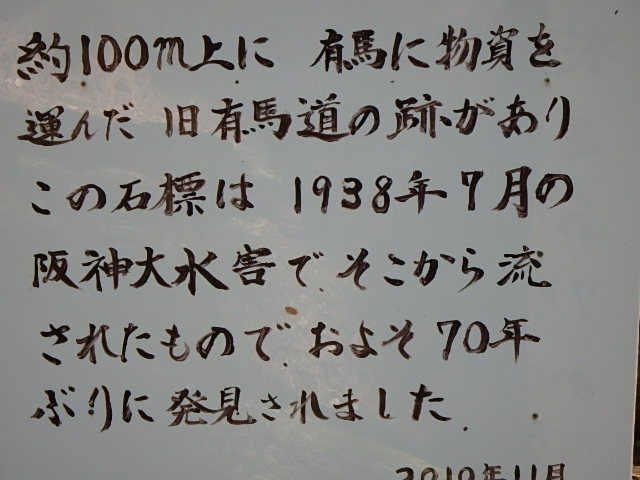 約100m上に 有馬に物資を
運んだ 旧有馬道の跡があり
この石標は 1938年7月の
阪神大水害で、そこから流
されたもので、およそ70年
ぶりに発見されました.
2010年11月